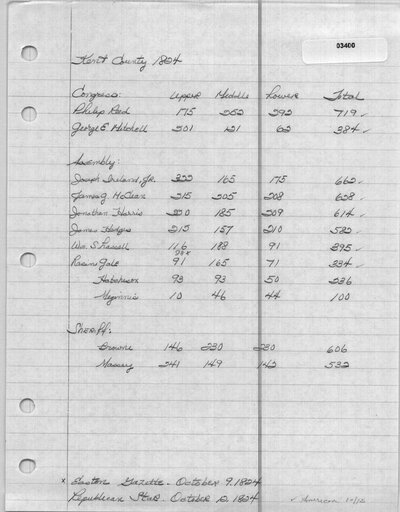 03400
Kent County 1824
Congress: Upper Middle Lower Total
Philip Reed 175 252 292 719 ✓
George E Mitchell 201 121 62 384 ✓
Assembly:
Joseph Ireland, Jr. 322 165 175 662 ✓
James G. McClean 215 205 208 628 ✓
Jonathan Harris 220 185 209 614 ✓
James Hodges 215 157 210 582 ✓
Wm. S. Lassell 116 188 91 395 ✓
Rasin Gale 91 165 71 334 ✓
Hutcheson 93 93 50 236
Meginnis 10 46 44 100
Sheriff:
Browne 146 230 230 606
Massey 241 149 142 532
x Easton Gazette - October 9, 1824
Republican Star - October 12, 1824 ✓ American 10/12